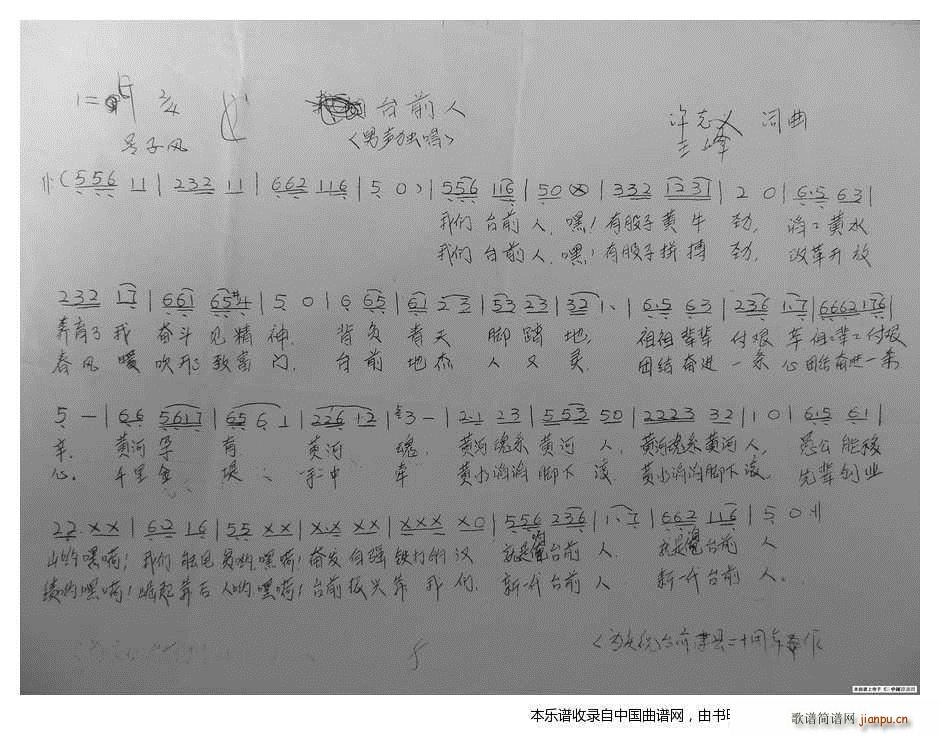 1= 2/4 台前人
号子风 <男声独唱> 许志 词曲
‖:(5 5 6 1 1 | 2 3 2 1 1 | 6 6 2 1 1 6 | 5 0 ) | 5 5 6 1 1 6 | 5 0 | 3 3 2 1 2 3 1 | 2 0 | 6·5 6 3 |
我们 台前 人, 嘿!有股子 黄 牛 劲, 黄水
我们 台前 人, 嘿!有股子 拼 搏 劲, 改革开放
2 3 2 1 7 | 6 6 1 6 5 #4 | 5 0 | 6 6 5 | 6 1 2 3 | 5 3 2 3 | 3 2 1· | 6·5 6 3 | 2 3 6 1·7 | 6 6 6 2 1 7 6 |
养育了 我 奋斗 见 精 神, 背 负 青 天 脚 踏 地,
春风 暖 致富 门, 台 前 地 杰 人 又 灵, 团结 奋进 一 条 心 团结奋进一条
5 — | 6 6 5 6 1 7 | 6 5 6 1 | 2 2 6 1 2 | 3 — | 2·1 2 3 | 5 5 3 5 0 | 2 2 2 3 3 2 | 1 0 | 6·5 6 1 |
辛, 黄河 孕 育 黄河 魂, 黄河魂系 黄河 人, 黄河魂系黄河 人, 愚公能移
心。 千里 金 堤 手中 牵 黄水滔滔 脚下 滚, 黄水滔滔脚下 滚, 先辈创业
2 2 X X | 6 2 1 6 | 5 5 X X | X·X X X | X X X X 0 | 5 5 6 2 3 6 | 1·7 | 6 6 2 1 1 6 | 5 0 :‖
山哟嘿嗬! 我们 嘿嗬!奋发 自强 铁打的 汉 就是 台前 人, 就是 台前 人
绩哟嘿嗬! 崛起靠后 人哟 嘿嗬!台前 振兴 靠 我 们, 新一代 台前 人 新一代 台前 人。
台前建县二十周年
本乐谱收录自中国曲谱网，由书
歌谱简谱网 jianpu.cn